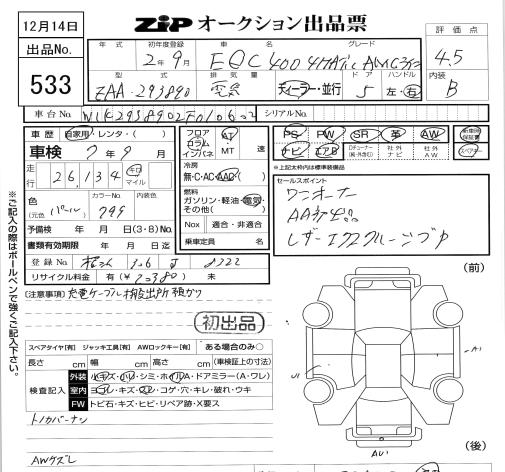 12月14日
ZIP オークション出品票
出品No.
533
年式 初年度登録 車名 グレード
2年9月 EQC 400 4マチック AMGライン
型式 排気量 ドア ハンドル
ZAA-293890 電気 ディーラー・並行 5 左・右
評価点
4.5
内装
B
車台No. W1K2938902F010602 シリアルNo.
車歴 自家用・レンタ・( )
車検 7年9月
走行 26,134 キロ マイル
色 (元色 パール) カラーNo. 799 内装色
予備検 年 月 日(3・8)No.
書類有効期限 年 月 日迄
登録No.
リサイクル料金 有(¥ ) 未
フロア コラム インパネ AT MT 速
冷房 無・C・AC・AAC
燃料 ガソリン・軽油・電気・その他( )
Nox 適合・非適合
乗車定員 名
PS PW SR 革 AW 新車時保証書
ナビ エアB Dチューナー(純・外含む) 社外ナビ 社外AW
※上記太枠内は標準装備品
セールスポイント
ワンオーナー
AA初出品
(注意事項) 充電ケーブル搬出所預かり
初出品
スペアタイヤ[有] ジャッキ工具[有] AWロックキー[有] ※ある場合のみ○
長さ cm 幅 cm 高さ cm (車検証上の寸法)
検査記入
外装 小キズ・小ヘコ・シミ・ホイルA・ドアミラー(A・ワレ)
室内 ヨゴレ・キズ・スレ・コゲ・穴・キレ・破れ・ウキ
FW トビ石・キズ・ヒビ・リペア跡・X要ス
トノカバーナシ
AWケズレ
※ご記入の際はボールペンで強くご記入下さい。
(前)
A1
U1
AU1
(後)